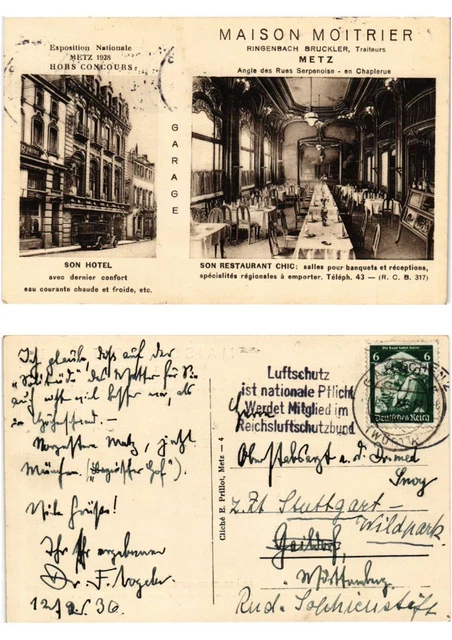 Exposition Nationale
METZ 1928
HORS CONCOURS
MAISON MOITRIER
RINGENBACH BRUCKLER, Traiteurs
METZ
Angle des Rues Serpenoise - en Chaplerue
GARAGE
SON HOTEL
avec dernier confort
eau courante chaude et froide, etc.
SON RESTAURANT CHIC: salles pour banquets et réceptions,
spécialités régionales à emporter. Téléph. 43 — (R. C. B. 317)
Ich glaube, daß auf der
"Solitüde" das Wetter für Sie
auch besser war, als
im
Metz, jetzt
München ("Bayrischer Hof").
Viele Grüße!
Ihr Ihr ergebener
Dr. F.
12/9. 36.
Cliché E. Prillot, Metz — 4
Luftschutz
ist nationale Pflicht
Werdet Mitglied im
Reichsluftschutzbund
6 6
Deutsches Reich
Herrn
Oberstabsarzt a. d. Dr. med.
z. Zt Stuttgart -
Wildpark
Gaildorf
Württemberg
Rud. Sophienstift